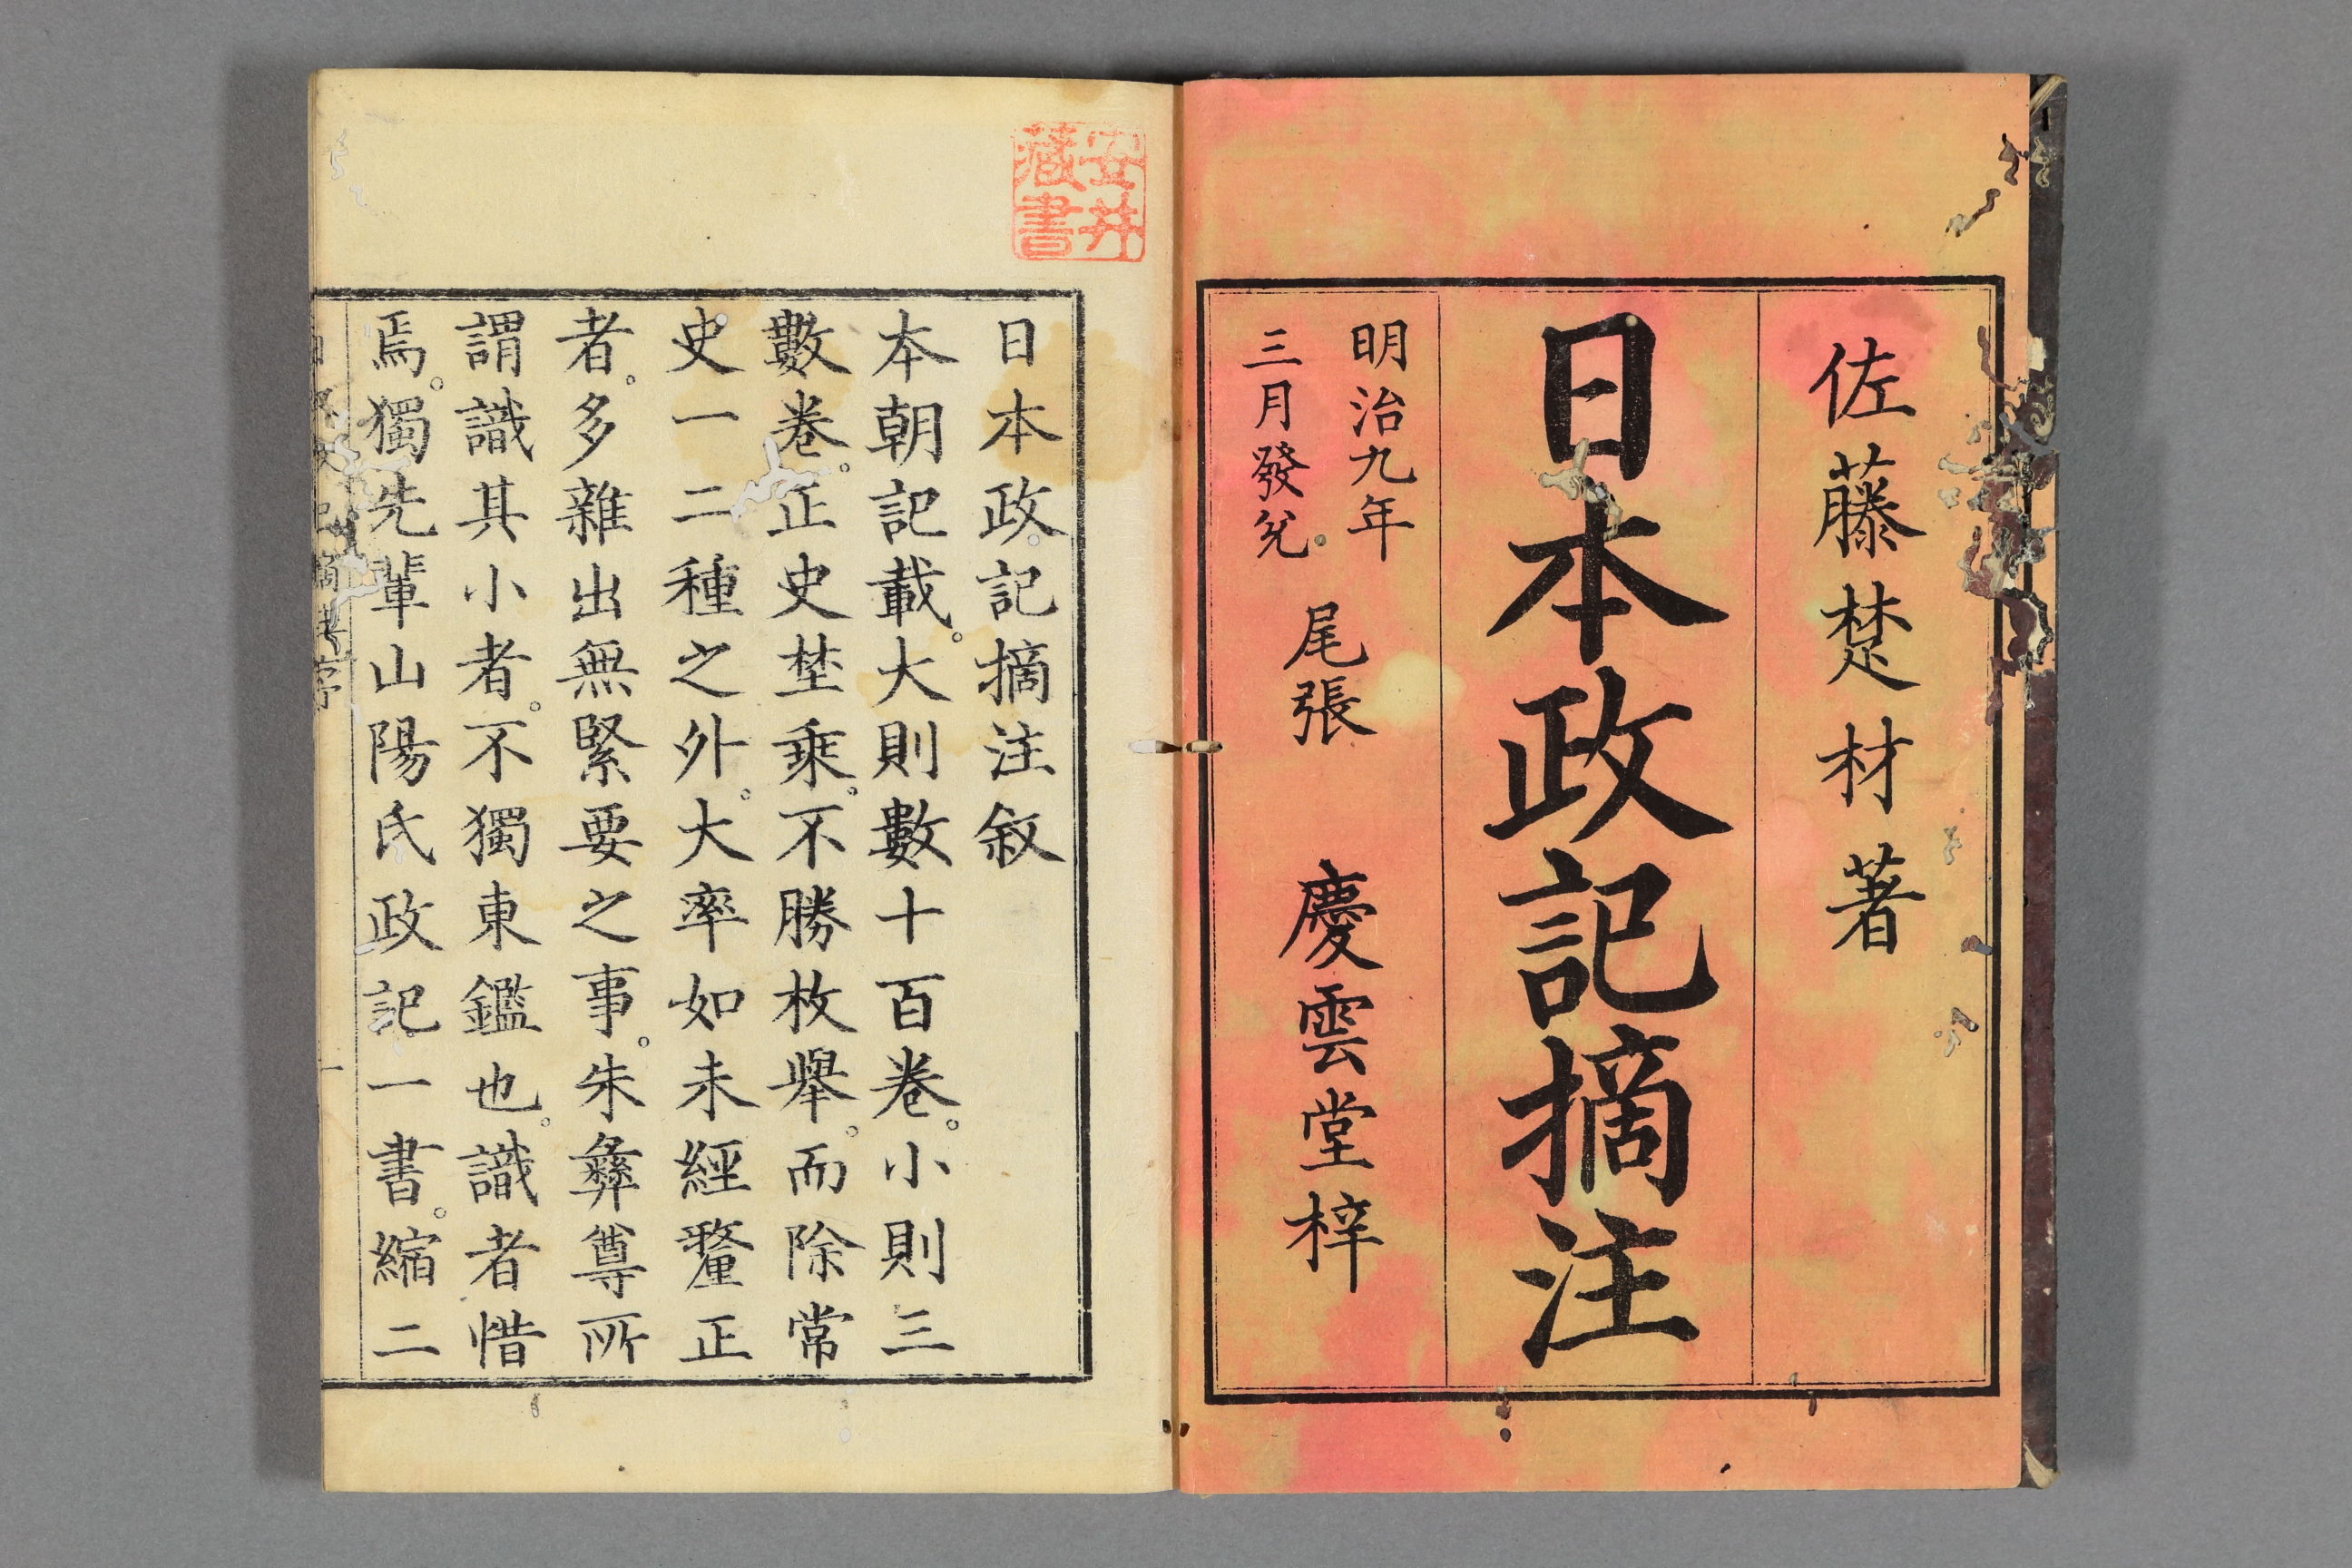 佐藤楚材著
日本政記摘注
明治九年
三月發兌。
尾張 慶雲堂梓
安井
藏書
日本政記摘注敘
本朝記載。大則數十百卷。小則三
數卷。正史埜乘。不勝枚舉。而除常
史一二種之外。大率如未經釐正
者。多雜出無緊要之事。朱彝尊所
謂識其小者。不獨東鑑也。識者惜
焉。獨先輩山陽氏政記一書。縮二